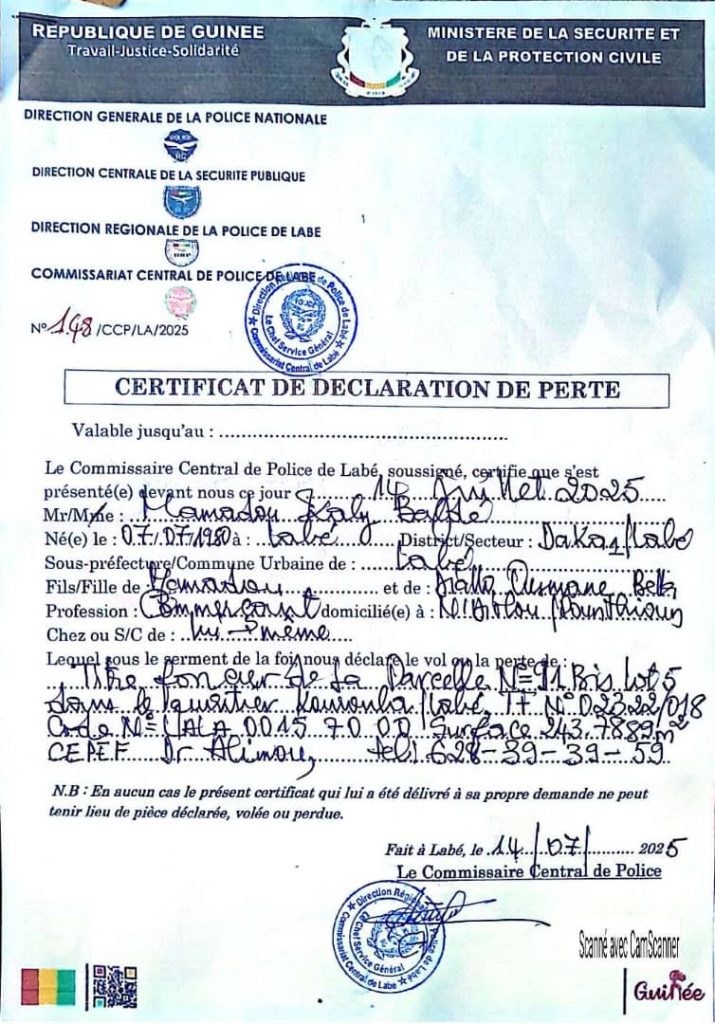 REPUBLIQUE DE GUINEE
Travail-Justice-Solidarité
MINISTERE DE LA SECURITE ET
DE LA PROTECTION CIVILE
DIRECTION GENERALE DE LA POLICE NATIONALE
DIRECTION CENTRALE DE LA SECURITE PUBLIQUE
DIRECTION REGIONALE DE LA POLICE DE LABE
COMMISSARIAT CENTRAL DE POLICE DE LABE
N° 148 /CCP/LA/2025
Direction Régionale de Police de Labé
Le Chef Service Général
Commissariat Central de Labé
CERTIFICAT DE DECLARATION DE PERTE
Valable jusqu'au :
Le Commissaire Central de Police de Labé, soussigné, certifie que s'est
présenté(e) devant nous ce jour 14 Juillet 2025
Mr/Mme : Mamadou Baldé
Né(e) le : 07/07/1980 à : Labé District/Secteur : Daka 1/Labé
Sous-préfecture/Commune Urbaine de : Labé
Fils/Fille de Mamadou et de : Diallo Ousmane
Profession : Commerçant domicilié(e) à :
Chez ou S/C de : lui-même
Lequel sous le serment de la foi nous déclare le vol ou la perte de :
Titre foncier de la Parcelle N° 91 Bis Lot 5
dans le quartier Kouroula/Labé, TF N° 02322/018
Code N° LALA 0015 70 00 Surface 243.7889 m²
CEPEF Dr Alimou, tel: 628-39-39-59
N.B : En aucun cas le présent certificat qui lui a été délivré à sa propre demande ne peut
tenir lieu de pièce déclarée, volée ou perdue.
Fait à Labé, le 14/07/ 2025
Le Commissaire Central de Police
Direction Régionale de Police de Labé
Le Chef Service Général
Commissariat Central de Labé
Scanné avec CamScanner
Guinée